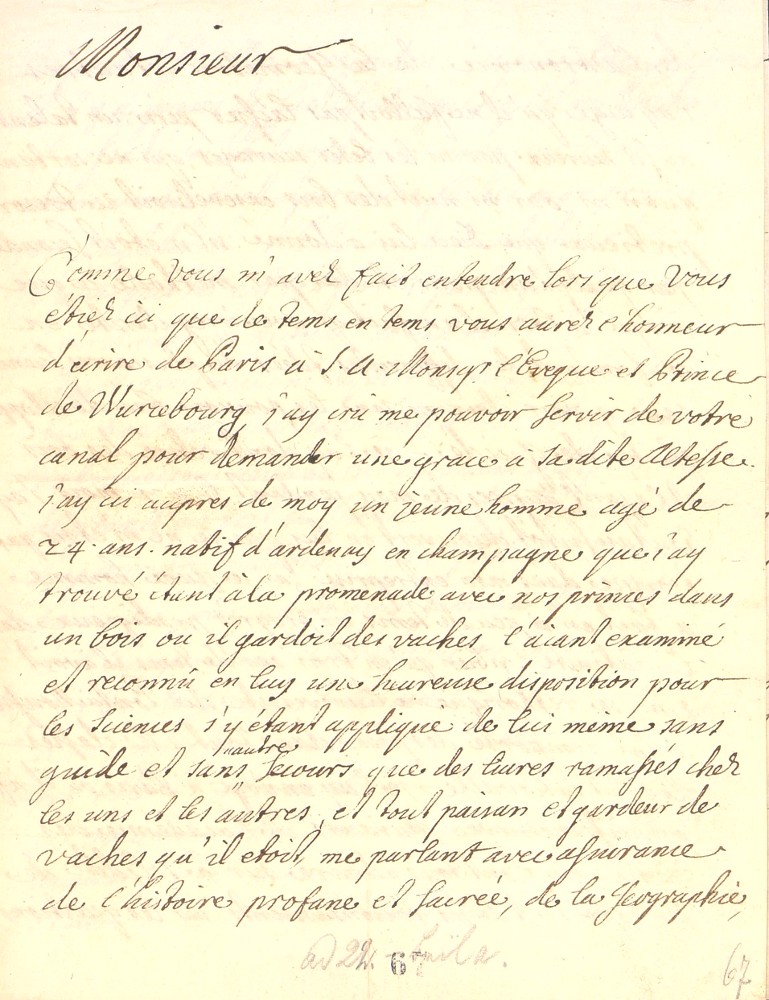 Monsieur
Comme vous m'avez fait entendre lorsque vous
êtiez ici que de tems en tems vous aurez l'honneur
d'ecrire de Paris à S. A. Monsgr l'Eveque et Prince
de Wurcebourg j'ay crû me pouvoir servir de votre
canal pour demander une grace à sa dite Altesse.
j'ay ici aupres de moy un jeune homme agé de
24 ans. natif d'ardenay en champagne que j'ay
trouvé êtant à la promenade avec nos princes dans
un bois ou il gardoit des vaches l'aiant examiné
et reconnû en luy une heureuse disposition pour
les sciences s'y étant appliqué de lui même sans
guide et sans autre secours que des livres ramassés chez
les uns et les autres, et tout païsan et gardeur de
vaches qu'il etoit, me parlant avec assurance
de l'histoire profane et sacrée, de la geographie,
ad 22.
67
67